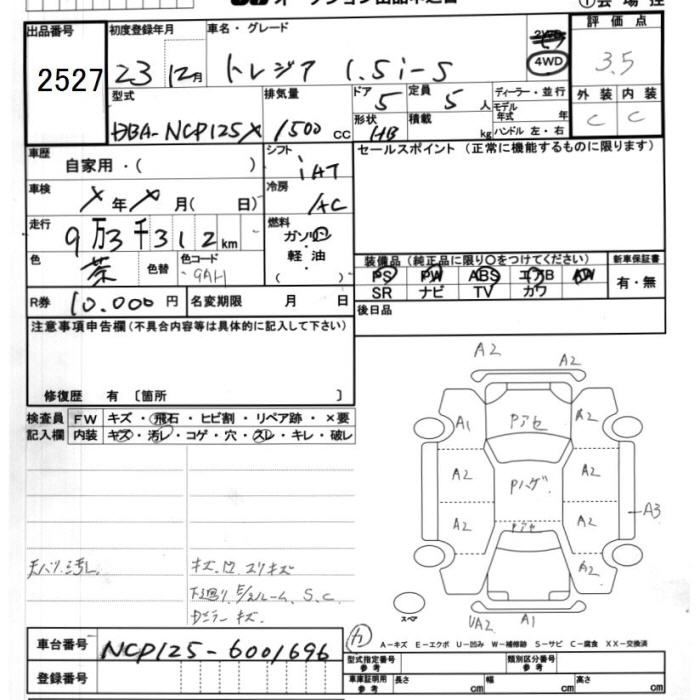 出品番号 2527
初度登録年月 23 12月
車名・グレード トレジア 1.5i-S
4WD
①会場控
評価点 3.5
型式 DBA-NCP125X
排気量 1500 cc
ドア 5
定員 5 人
ディーラー・並行
モデル年式 年
形状 HB
積載 kg
ハンドル 左・右
外装 C
内装 C
車歴 自家用・( )
シフト iAT
セールスポイント（正常に機能するものに限ります）
車検 X 年 X 月( 日)
冷房 AC
走行 9万3千312km
燃料 ガソリン・軽油・( )
色 茶 色替
色コード 9AH
装備品（純正品に限り○をつけてください）
PS PW ABS エアB AW
SR ナビ TV カワ
新車保証書 有・無
R券 10.000 円
名変期限 月 日
後日品
注意事項申告欄（不具合内容等は具体的に記入して下さい）
修復歴 有 〔箇所 〕
検査員記入欄
FW キズ・飛石・ヒビ割・リペア跡・×要
内装 キズ・汚レ・コゲ・穴・スレ・キレ・破レ
A2 A2
A1 Pアセ A2
A2 Pハゲ A2
A3
A2 Pアセ A2
A2
スペア
UA2 A1
天バリ汚レ
キズ、凹 スリキズ
下廻り、E/スルーム、S.C.
Dミラーキズ
A-キズ E-エクボ U-凹み W-補修跡 S-サビ C-腐食 XX-交換済
車台番号 NCP125-6001696
カ
登録番号
型式指定番号 参考
類別区分番号 参考
車庫証明用 参考 長さ cm 幅 cm 高さ cm